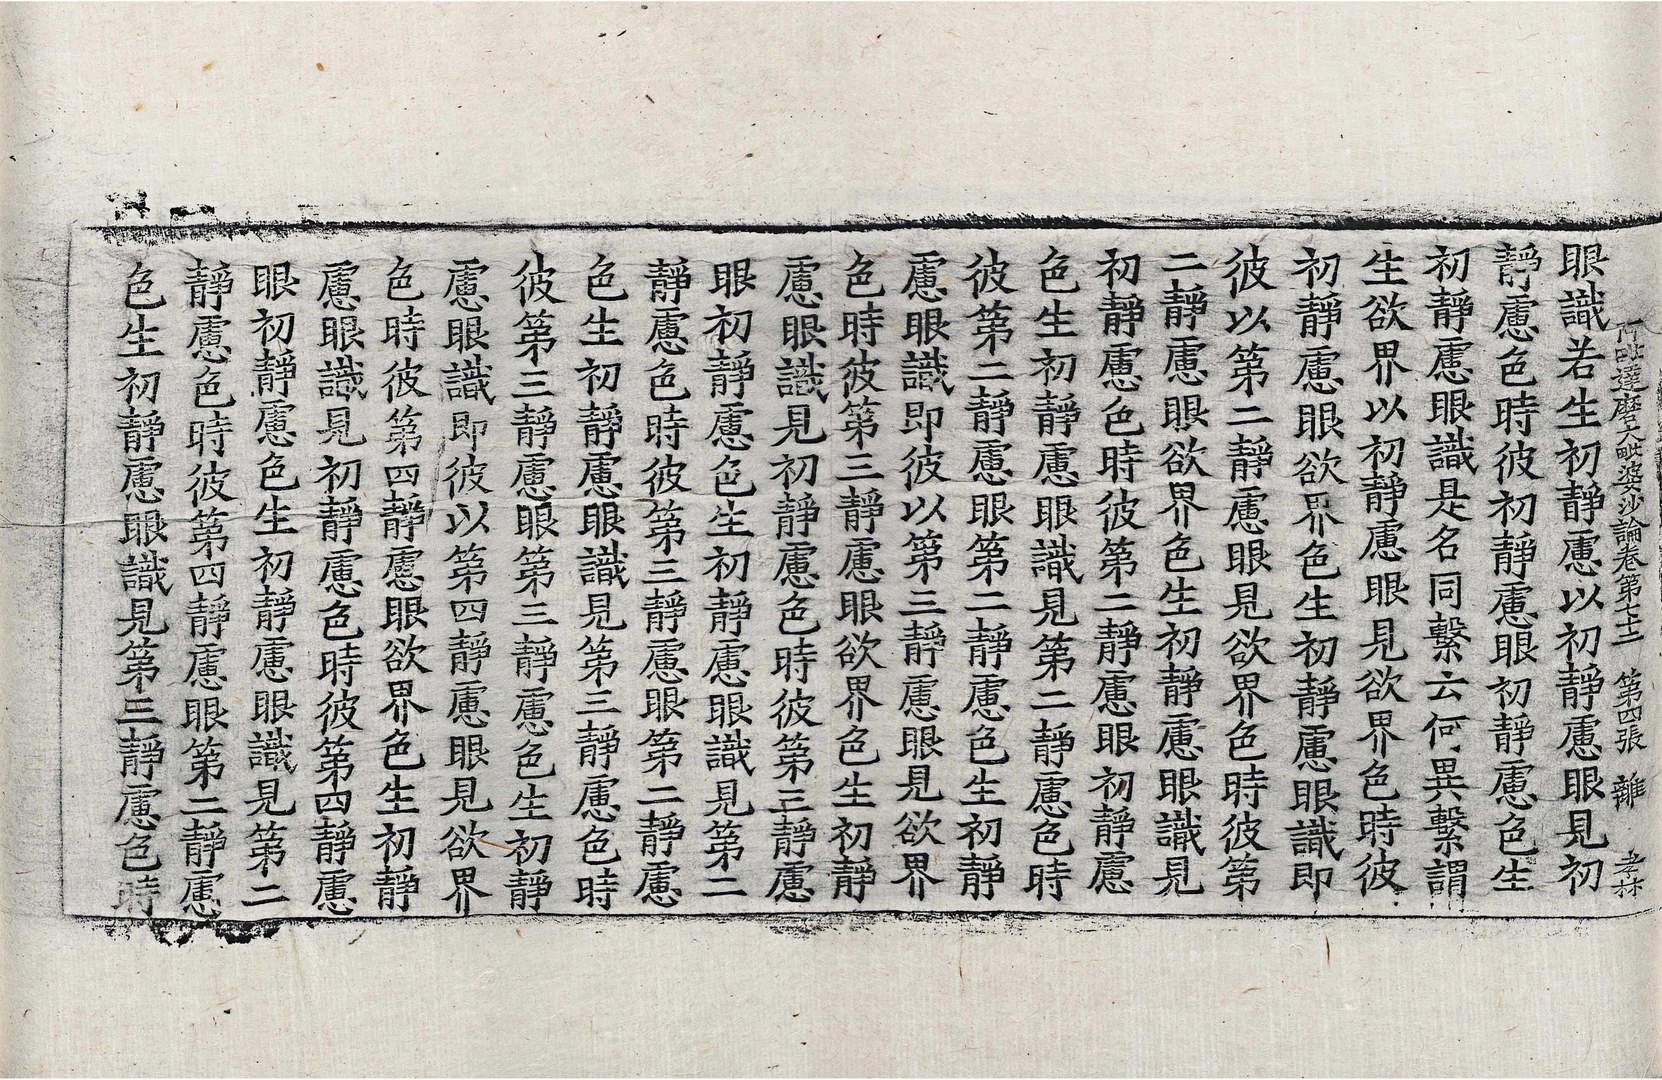 阿毗達磨大毗婆沙論卷第七十二 第四張 離 孝林
眼識若生初靜慮以初靜慮眼見初
靜慮色時彼初靜慮眼初靜慮色生
初靜慮眼識是名同繫云何異繫謂
生欲界以初靜慮眼見欲界色時彼
初靜慮眼欲界色生初靜慮眼識即
彼以第二靜慮眼見欲界色時彼第
二靜慮眼欲界色生初靜慮眼識見
初靜慮色時彼第二靜慮眼初靜慮
色生初靜慮眼識見第二靜慮色時
彼第二靜慮眼第二靜慮色生初靜
慮眼識即彼以第三靜慮眼見欲界
色時彼第三靜慮眼欲界色生初靜
慮眼識見初靜慮色時彼第三靜慮
眼初靜慮色生初靜慮眼識見第二
靜慮色時彼第三靜慮眼第二靜慮
色生初靜慮眼識見第三靜慮色時
彼第三靜慮眼第三靜慮色生初靜
慮眼識即彼以第四靜慮眼見欲界
色時彼第四靜慮眼欲界色生初靜
慮眼識見初靜慮色時彼第四靜慮
眼初靜慮色生初靜慮眼識見第二
靜慮色時彼第四靜慮眼第二靜慮
色生初靜慮眼識見第三靜慮色時